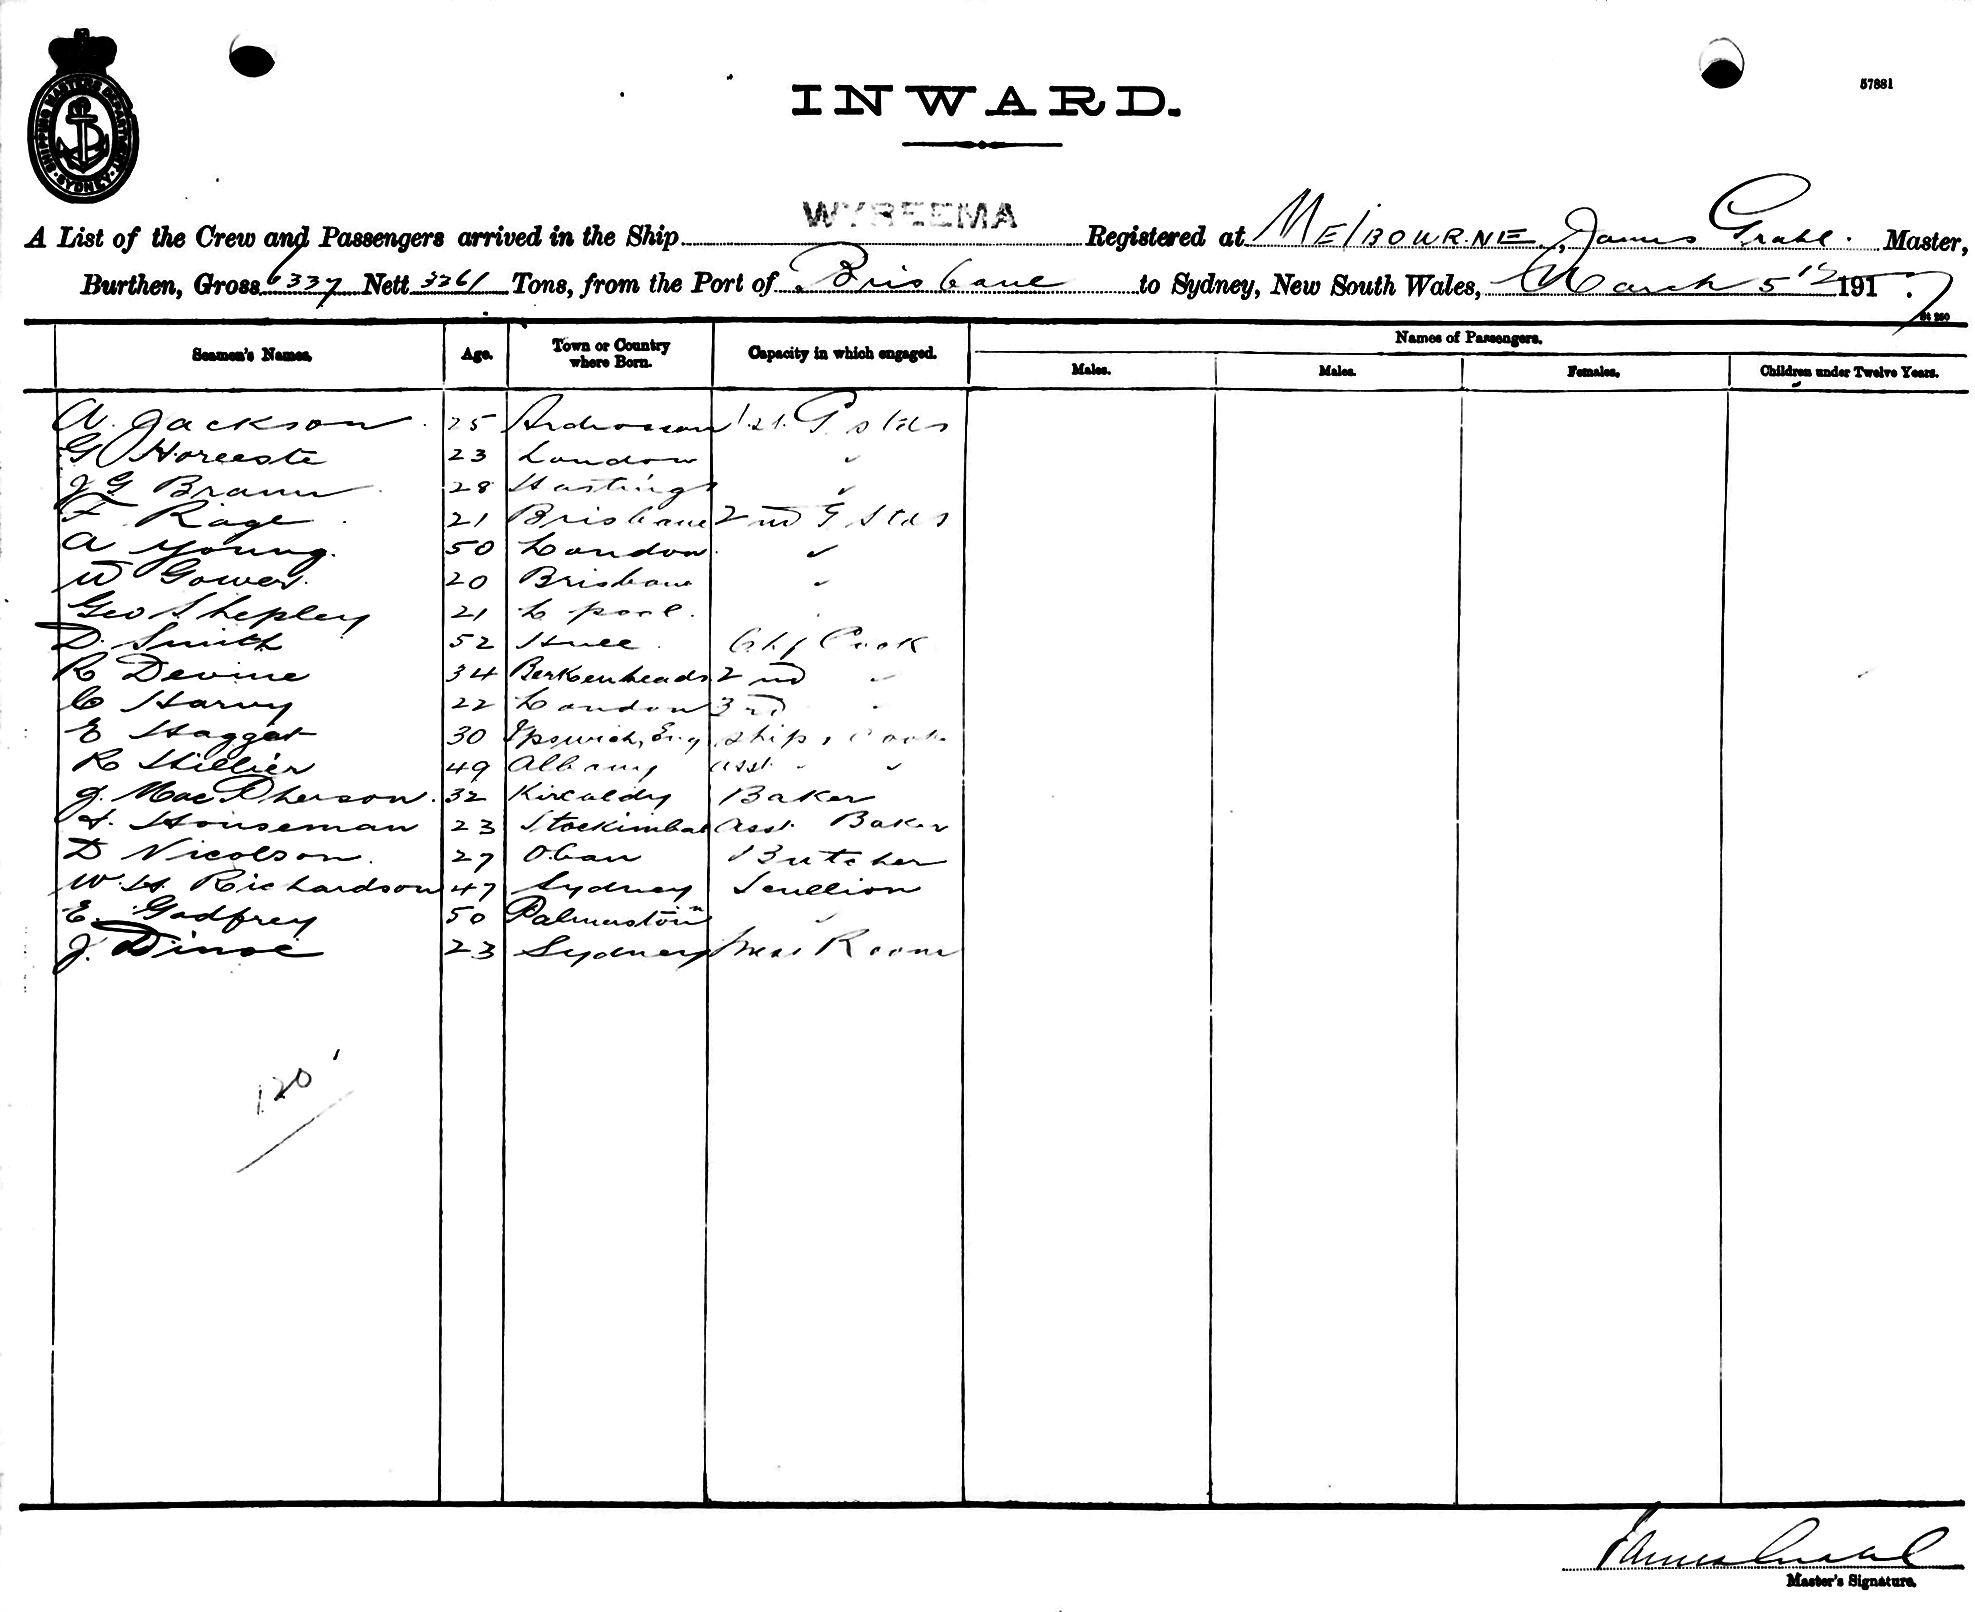 SHIPPING MASTERS DEPARTMENT SYDNEY
57881
INWARD.
A List of the Crew and Passengers arrived in the Ship WYREEMA Registered at MElBOURNE, James Grahl. Master,
Burthen, Gross 6337 Nett 3261 Tons, from the Port of Brisbane to Sydney, New South Wales, March 5th 1917
St 280
Seamen's Names. Age. Town or Country where Born. Capacity in which engaged. Names of Passengers.
Males. Males. Females. Children under Twelve Years.
A. Jackson 25 Ardrossan 1st. G. Stds
G 23 London "
J G Brann 28 Hastings "
F Rage 21 Brisbane 2nd G Stds
A Young. 50 London "
W Gower. 20 Brisbane "
Geo Shepley 21 L'pool. "
D. Smith 52 Hull Chf Cook
R Devine 34 Berkenheads 2nd "
C Harvy 22 London 3rd "
E Haggat 30 Ipswich, Eng Ships Cook
R Hillier 49 Albany asst. " "
J. MacPherson. 32 Kircaldy Baker
Houseman 23 asst. Baker
D Nicolson. 27 Oban Butcher
W. H. Richardson 47 Sydney Scullion
E. Godfrey 50 Palmerston "
J. 23 Sydney Mess Room
120
James Grahl
Master's Signature.